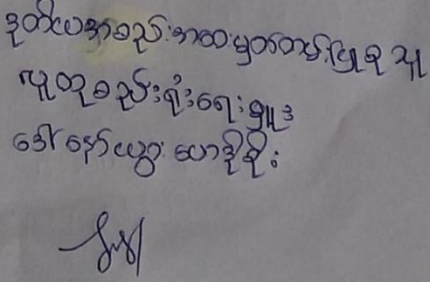 ဒုတိယအစည်းအဝေးမှတ်တမ်းပြုစုသူ
လူထုစည်းရုံးရေးမှူး
ဒေါ်နော်ယွာဟေဒိုစိုး